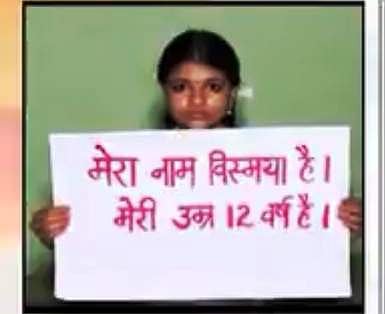 मेरा नाम विस्मया है।
मेरी उम्र 12 वर्ष है।